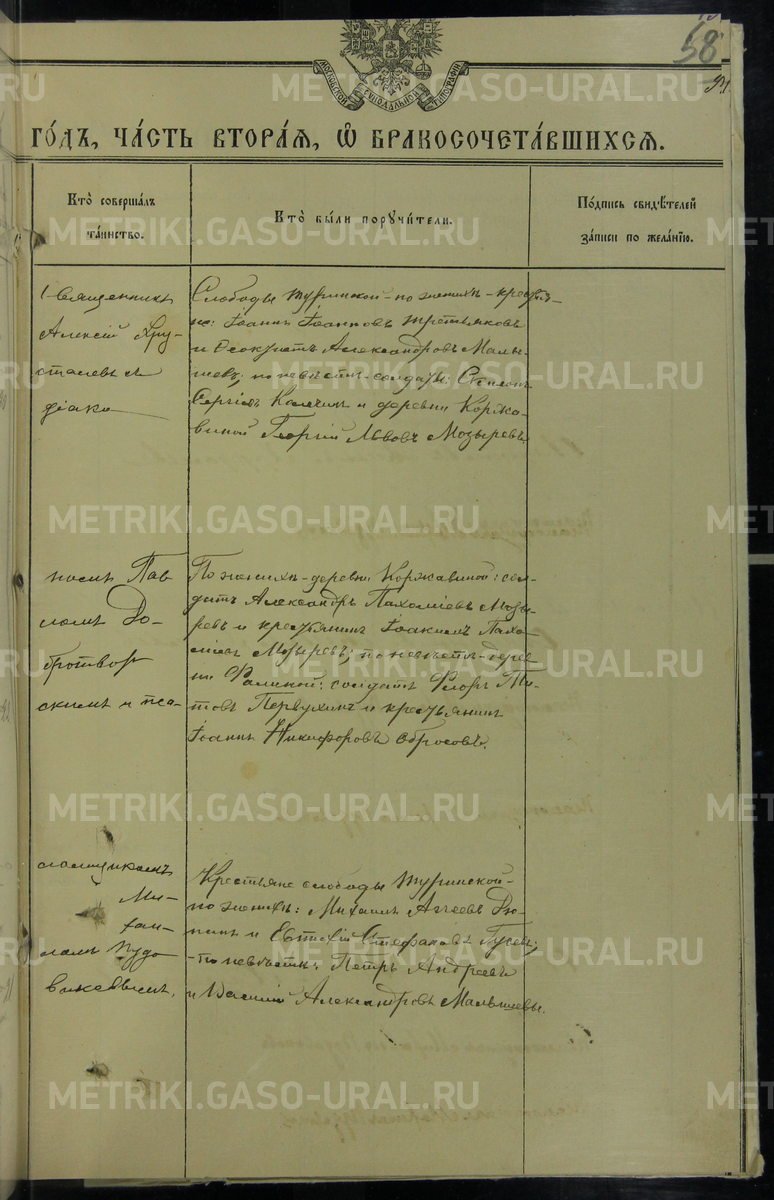 58
МОСКОВСКОЙ СѴНОДАЛЬНОЙ ТИПОГРАФІИ
ГО́ДЪ, ЧА́СТЬ ВТОРА́Я, Ѡ҆ БРАКОСОЧЕТА́ВШИХСЯ.
Кто̀ соверша́лъ
та́инство.
Кто̀ бы́ли поручи́тели.
По́дпись свидѣ́телей
за́писи по жела́нїю.
Священникъ
Алексій Хру-
сталевъ съ
діако-
Слободы Туринской-по женихѣ-крестья-
не: Іоаннъ Іоанновъ Третьяковъ
и Ѳеоктистъ Александровъ Малы-
шевъ; по невѣстѣ-солдаты:
Сергіевъ и деревни Коржа-
виной Георгій Львовъ Мозыревъ.
номъ Пав-
ломъ До-
бротвор-
скимъ и пса-
По женихѣ-деревни Коржавиной: сол-
датъ Александръ Пахоміевъ Мозы-
ревъ и крестьянинъ Іоакимъ Пахо-
міевъ Мозыревъ; по невѣстѣ-дерев-
ни Фалиной: солдатъ Флоръ Ти-
товъ Первухинъ и крестьянинъ
Іоаннъ Никифоровъ Обросовъ.
ломщикомъ
Ми-
хаи-
ломъ Пудо-
викевымъ.
Крестьяне слободы Туринской-
по женихѣ: Михаилъ Аггеевъ Дю-
пинъ и Евтихій Стефановъ Гусевъ;
-по невѣстѣ: Петръ Андреевъ
и Василій Александровъ Малышевы.
METRIKI.GASO-URAL.RU